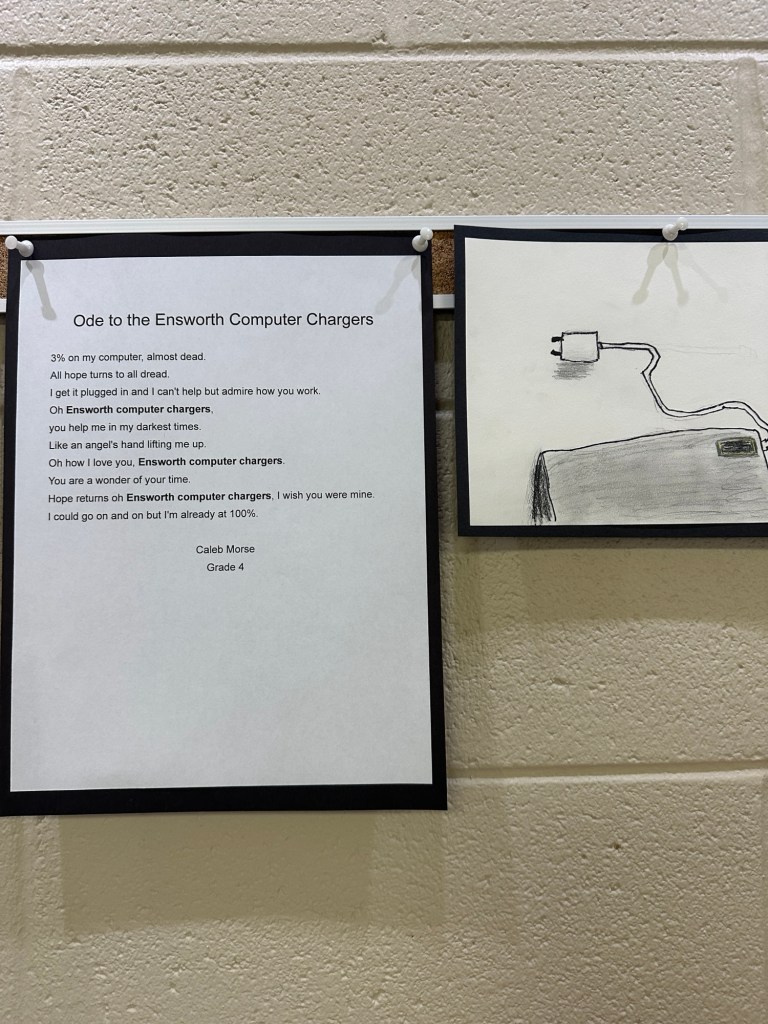 Ode to the Ensworth Computer Chargers
3% on my computer, almost dead.
All hope turns to all dread.
I get it plugged in and I can't help but admire how you work.
Oh Ensworth computer chargers,
you help me in my darkest times.
Like an angel's hand lifting me up.
Oh how I love you, Ensworth computer chargers.
You are a wonder of your time.
Hope returns oh Ensworth computer chargers, I wish you were mine.
I could go on and on but I'm already at 100%.
Caleb Morse
Grade 4